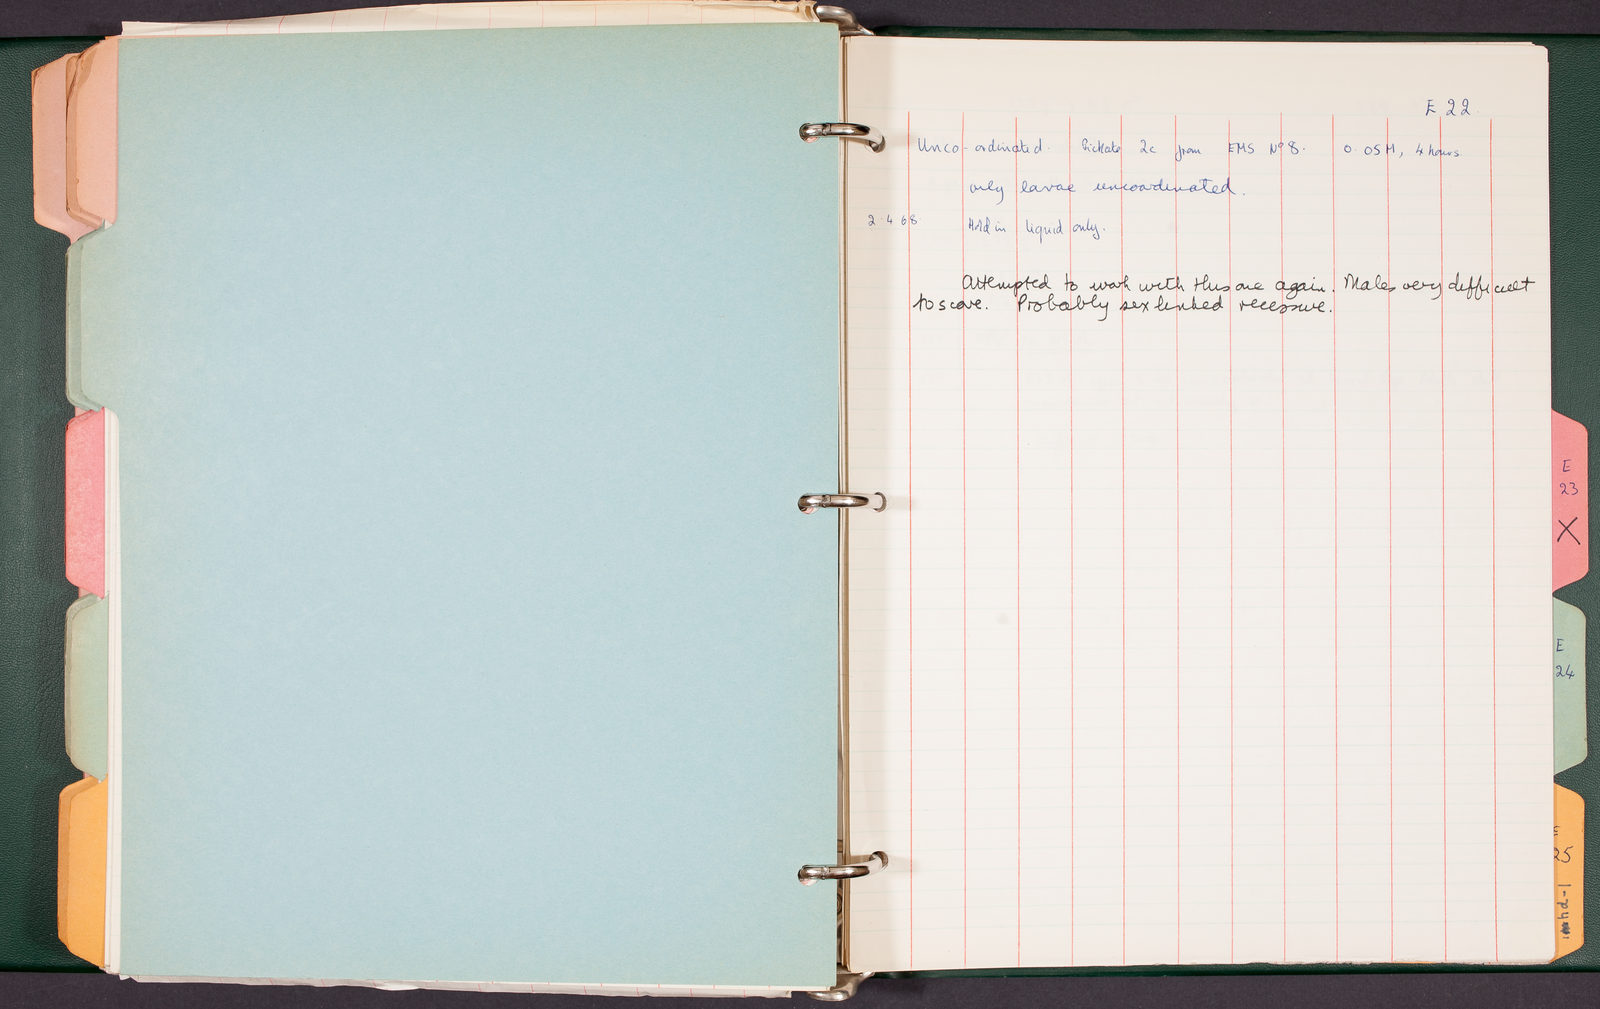 E 22.
Unco-ordinated. Picked 2c from EMS Nº 8. 0.05M, 4 hours
only larvae uncoordinated.
2.4.68. Hold in liquid only.
Attempted to work with this one again. Males very difficult
to score. Probably sex linked recessive.
E
23
X
E
24
E
25